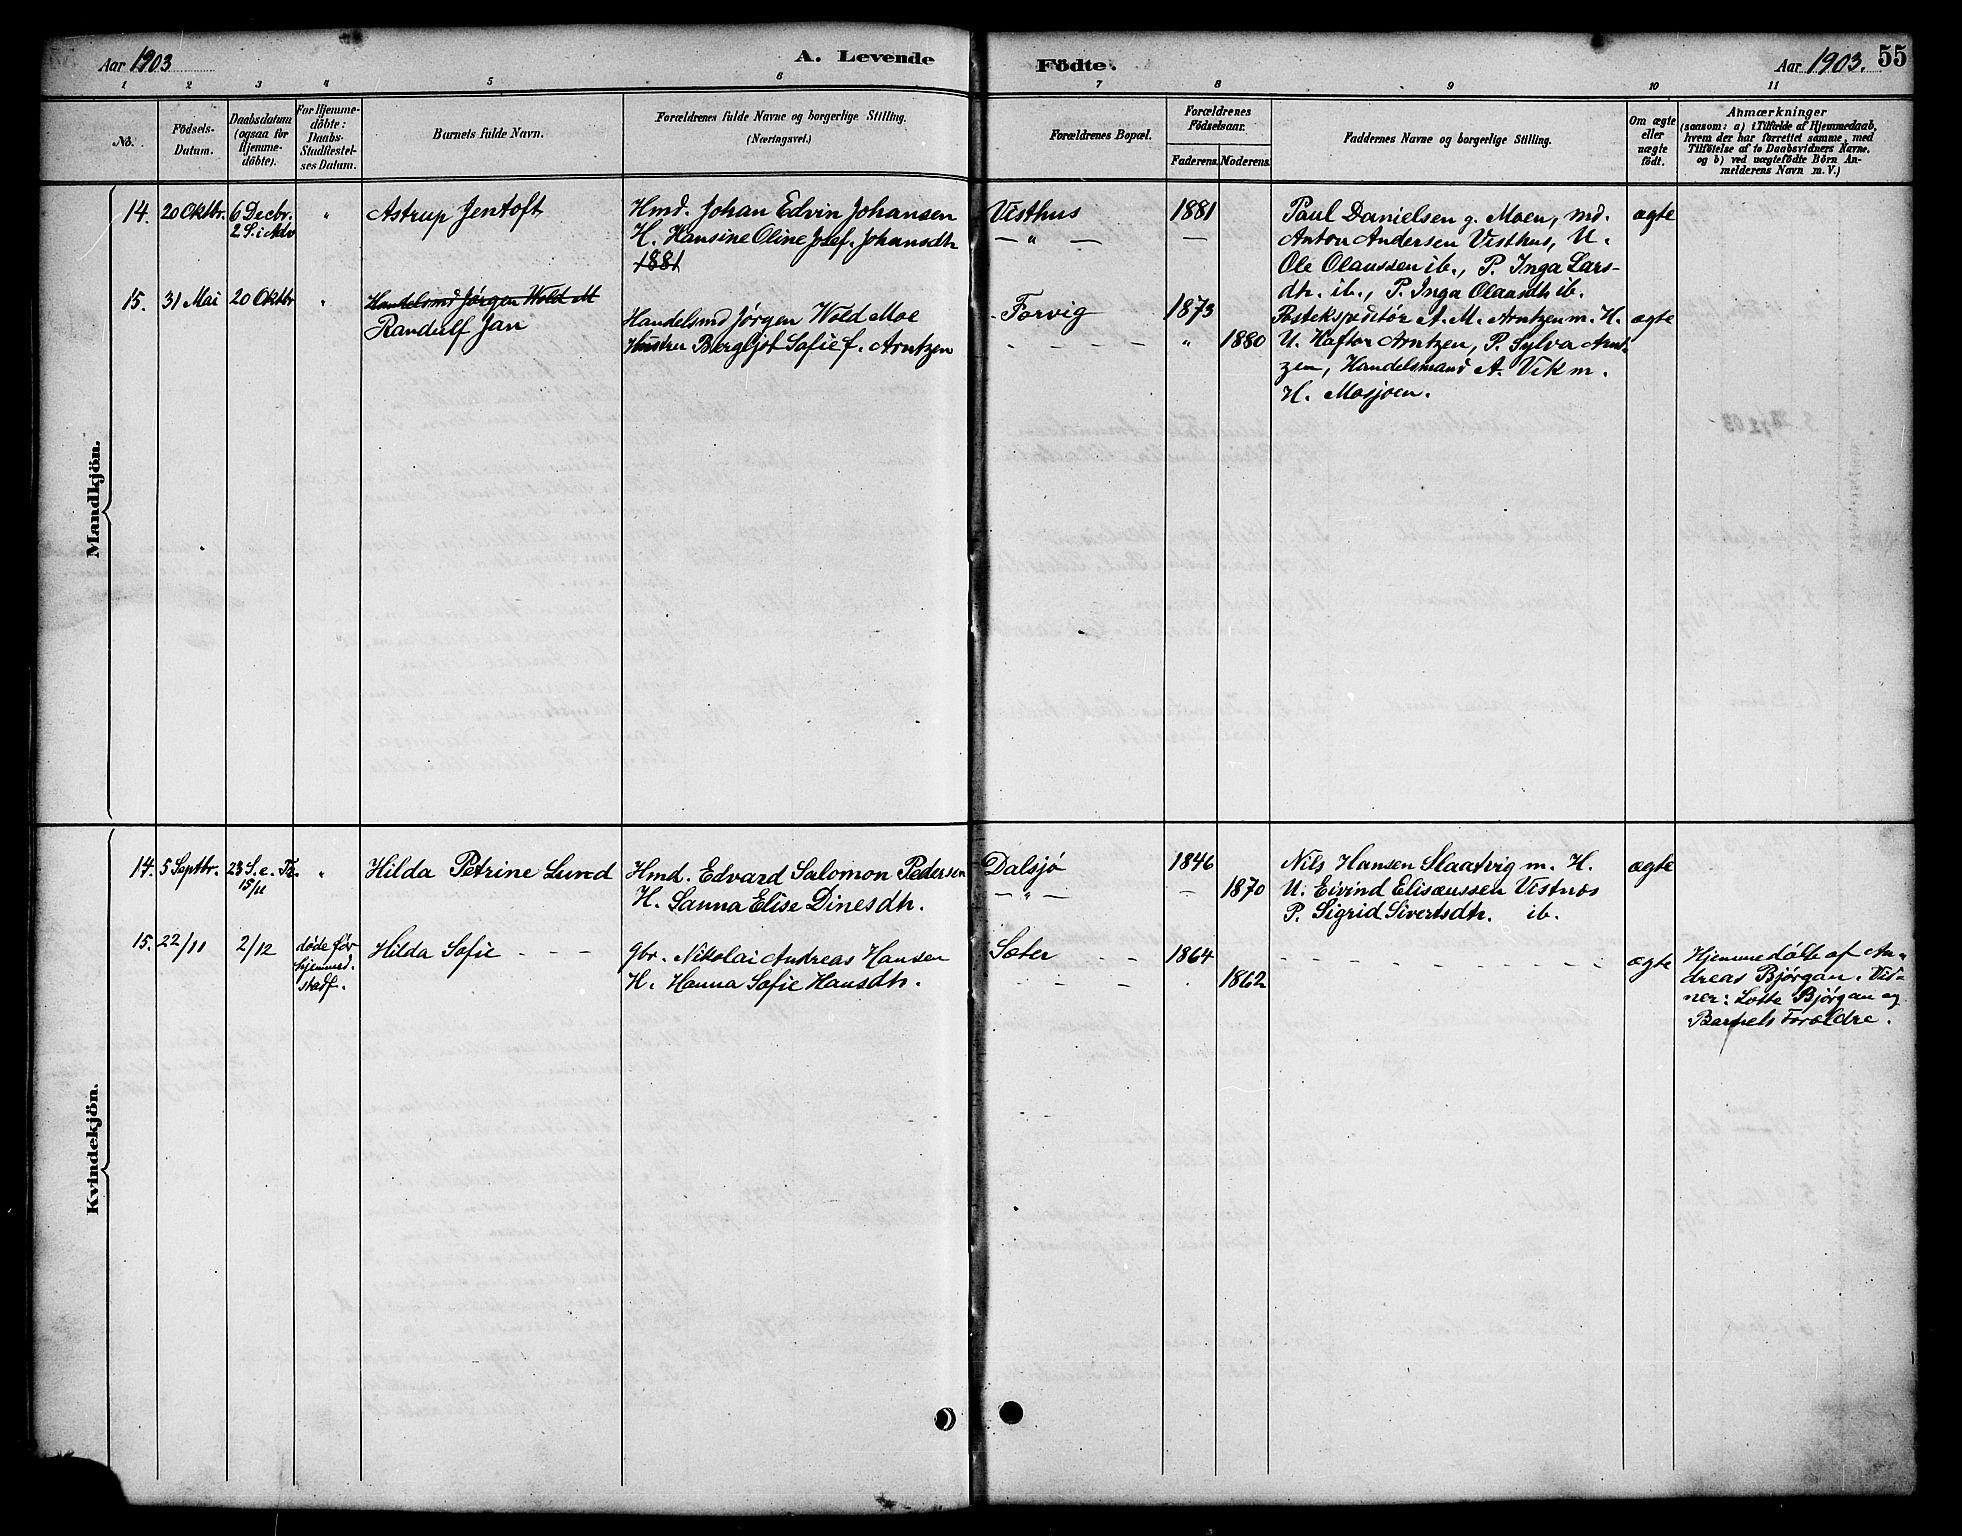 Aar 1903
A. Levende
Födte.
Aar 1903. 55
1 2 3 4 5 6 7 8 9 10 11
No.
Födsels-
Datum.
Daabsdatum
(ogsaa for
Hjemme-
döbte).
For Hjemme-
döbte:
Daabs-
Stadfæstel-
ses Datum.
Barnets fulde Navn.
Forældrenes fulde Navne og borgerlige Stilling.
(Næringsvei.)
Forældrenes Bopæl.
Forældrenes
Födselsaar.
Faderens. Moderens.
Faddernes Navne og borgerlige Stilling.
Om ægte
eller
uægte
födt.
Anmærkninger
(saasom: a) i Tilfælde af Hjemmedaab,
hvem der har forrettet samme, med
Tilföielse af to Daabsvidners Navne.
og b) ved uægtefödte Börn An-
melderens Navn m. V.)
Mandkjön.
14. 20 Oktbr. 6 Decbr. " Astrup Jentoft Hmd. Johan Edvin Johansen Visthus 1881 Paul Danielsen g. Moen, md. ægte
2 S. i Adv H. Hansine Oline Josef. Johansdtr — " — — Anton Andersen Visthus, U.
1881 Ole Olaussen ib., P. Inga Lars-
dtr. ib., P. Inga Olausdtr ib.
15. 31 Mai 20 Oktbr " Handelsmd Jørgen Wold M
Randulf Jan Handelsmd Jørgen Wold Moe Forvig 1873 Postekspeditør A. M. Arntzen m. H. ægte
Hustru Bergljot Sofie f. Arntzen " 1880 U. Haftor Arntzen, P. Sylva Arnt-
zen, Handelsmand A. Vik m.
H. Mosjøen.
Kvindekjön.
14. 5 Septbr. 23 S. e. Tr. " Hilda Petrine Lund Hmd. Edvard Salomon Pedersen Dalsjø 1846 Nils Hansen Slaatvig m. H. ægte
15/11 H. Sanna Elise Dinesdtr. — " — — 1870 U. Eivind Elisæussen Vistnes
P. Sigrid Sivertsdtr. ib.
15. 22/11 2/12 døde før Hilda Sofie — — gbr. Nikolai Andreas Hansen Sæter 1864 ægte Hjemmedøbt af An-
hjemmed. H. Hanna Sofie Hansdtr. 1862 dreas Bjørgan. Vid-
stadf. ner: Lotte Bjørgan og
Barnets Forældre.